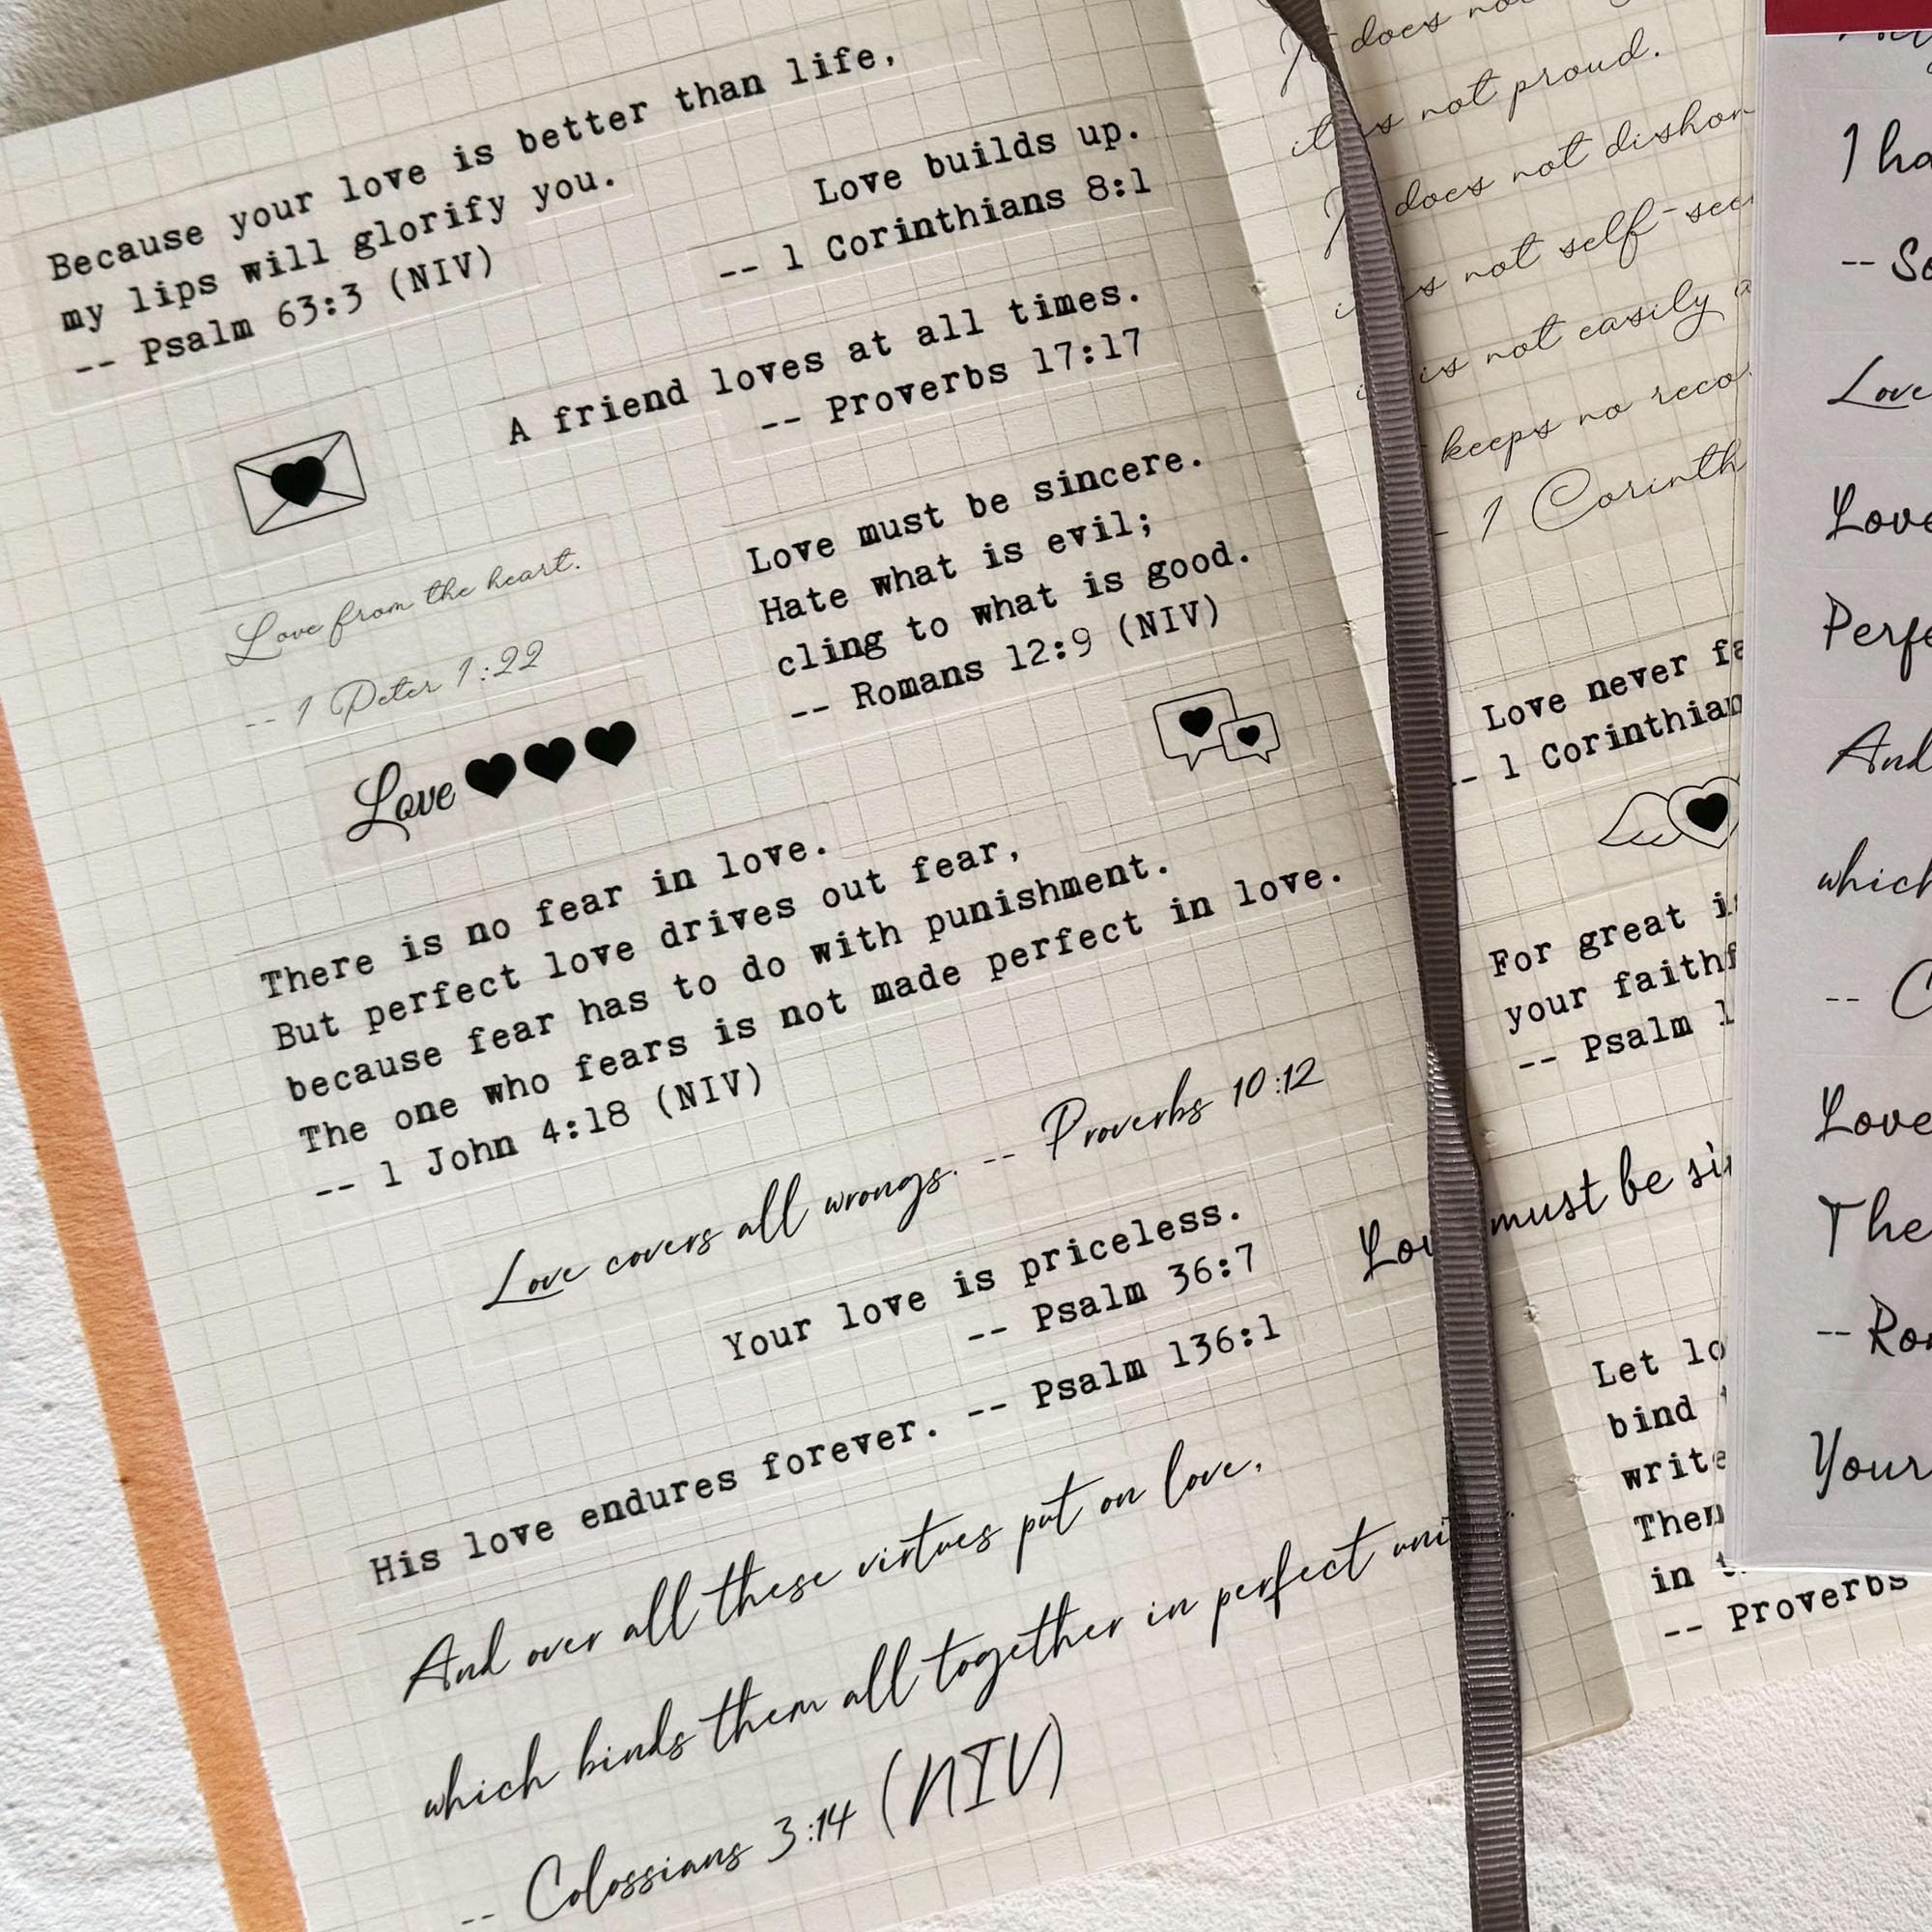 Because your love is better than life,
my lips will glorify you.
-- Psalm 63:3 (NIV)
Love builds up.
-- 1 Corinthians 8:1
A friend loves at all times.
-- Proverbs 17:17
Love from the heart.
-- 1 Peter 1:22
Love must be sincere.
Hate what is evil;
cling to what is good.
-- Romans 12:9 (NIV)
Love
There is no fear in love.
But perfect love drives out fear,
because fear has to do with punishment.
The one who fears is not made perfect in love.
-- 1 John 4:18 (NIV)
Love covers all wrongs. -- Proverbs 10:12
Your love is priceless.
-- Psalm 36:7
His love endures forever. -- Psalm 136:1
And over all these virtues put on love,
which binds them all together in perfect
-- Colossians 3:14 (NIV)
does
not proud.
does not
not
not easily
keeps no
1
Love never
1
For great
your
-- Psalm
must be
Let
bind
in
-- Proverbs
I
--
Love
Love
And
which
--
Love
The
--
Your